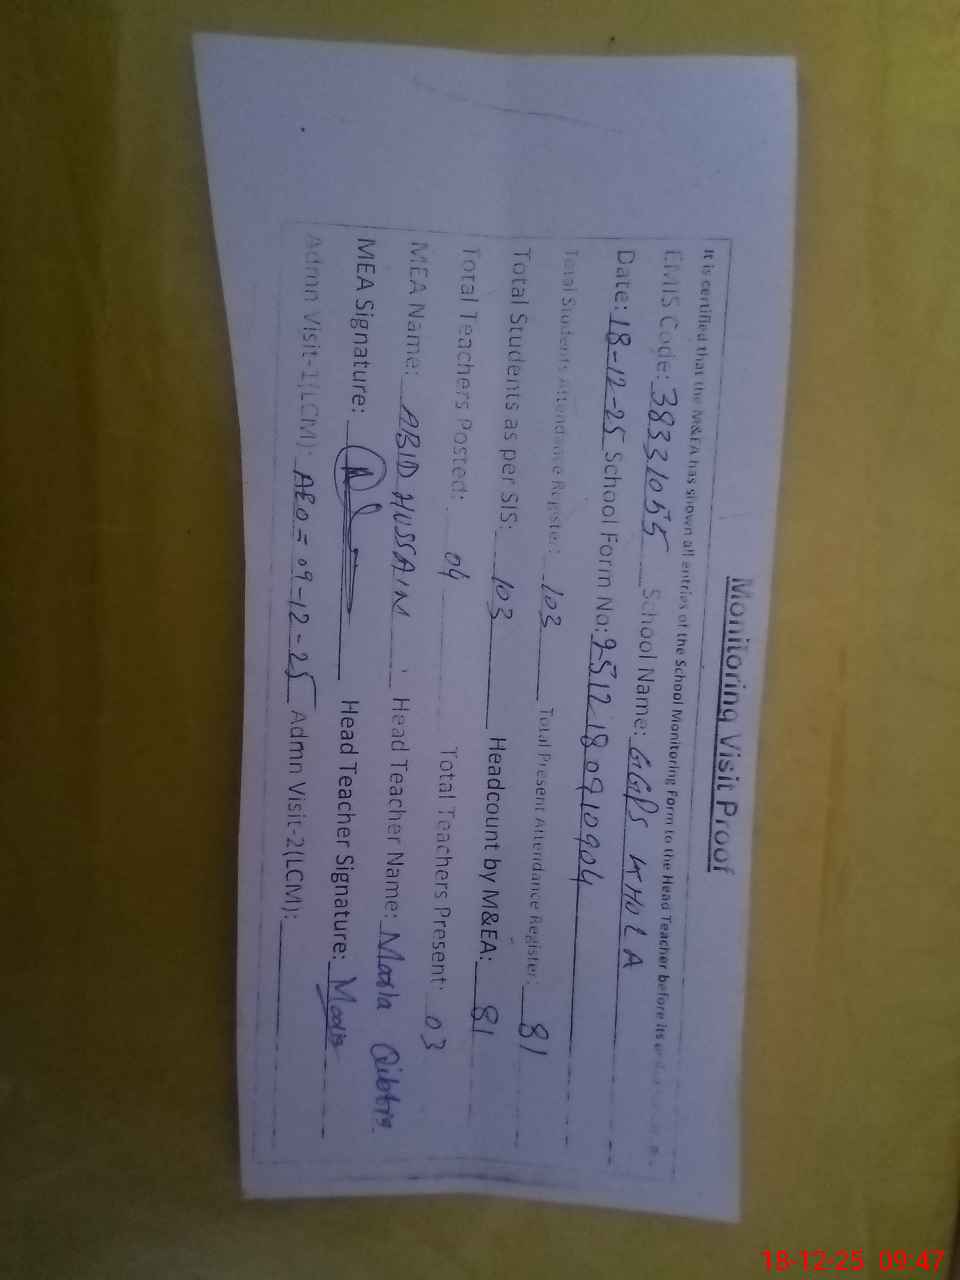 Monitoring Visit Proof
It is certified that the M&EA has shown all entries of the School Monitoring Form to the Head Teacher before its
EMIS Code: 38331055 School Name: GGPS KHOLA
Date: 18-12-25 School Form No: 951218 0910904
Total Students Attendance Register: 103 Total Present Attendance Register: 81
Total Students as per SIS: 103 Headcount by M&EA: 81
Total Teachers Posted: 04 Total Teachers Present: 03
MEA Name: ABID HUSSAIN Head Teacher Name: Qibtia
MEA Signature: Head Teacher Signature:
Admn Visit-1(LCM): AEO = 09-12-25 Admn Visit-2(LCM):
18-12-25 09:47